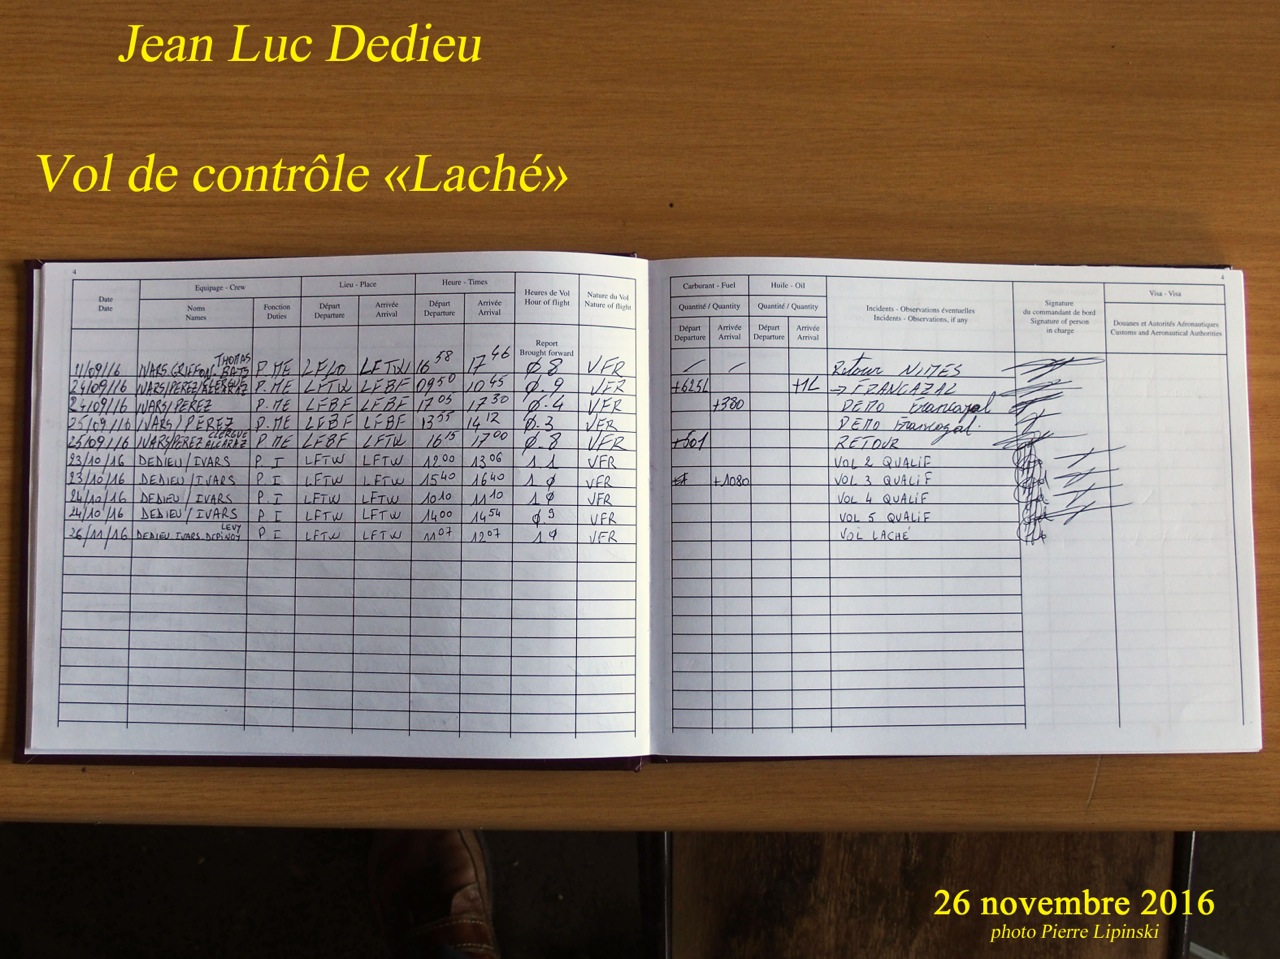 Jean Luc Dedieu
Vol de contrôle «Laché»
4
4
Date Equipage - Crew Lieu - Place Heure - Times Heures de Vol Nature du Vol
Date Noms Fonction Départ Arrivée Départ Arrivée Hour of flight Nature of flight
Names Duties Departure Arrival Departure Arrival
Report
Brought forward
Carburant - Fuel Huile - Oil Incidents - Observations éventuelles Signature Visa - Visa
Quantité / Quantity Quantité / Quantity Incidents - Observations, if any du commandant de bord Douanes et Autorités Aéronautiques
Départ Arrivée Départ Arrivée Signature of person Customs and Aeronautical Authorities
Departure Arrival Departure Arrival in charge
11/09/16 IVARS THOMAS P. ME LFTW 16 58 17 46 0.8 VFR Retour NIMES
24/09/16 IVARS/PEREZ/CLERGUE P. ME LFTW LFBF 09 50 10 45 0.9 VFR +625L +1L → FRANCAZAL
24/09/16 IVARS/PEREZ P. ME LFBF LFBF 17 05 17 30 0.4 VFR +380 DEMO Francazal
25/09/16 IVARS/PEREZ P. ME LFBF LFBF 13 55 14 12 0.3 VFR DEMO Francazal
25/09/16 IVARS/PEREZ CLERGUE ALCARAZ P. ME LFBF LFTW 16 15 17 00 0.8 VFR +501 RETOUR
23/10/16 DEDIEU/IVARS P. I LFTW LFTW 12 00 13 06 1.1 VFR VOL 2 QUALIF
23/10/16 DEDIEU/IVARS P. I LFTW LFTW 15 40 16 40 1.0 VFR +1080 VOL 3 QUALIF
24/10/16 DEDIEU/IVARS P. I LFTW LFTW 10 10 11 10 1.0 VFR VOL 4 QUALIF
24/10/16 DEDIEU/IVARS P I LFTW LFTW 14 00 14 54 0.9 VFR VOL 5 QUALIF
26/11/16 DEDIEU IVARS DEPINOY LEVY P I LFTW LFTW 11 07 12 07 1.0 VFR VOL LACHÉ
26 novembre 2016
photo Pierre Lipinski